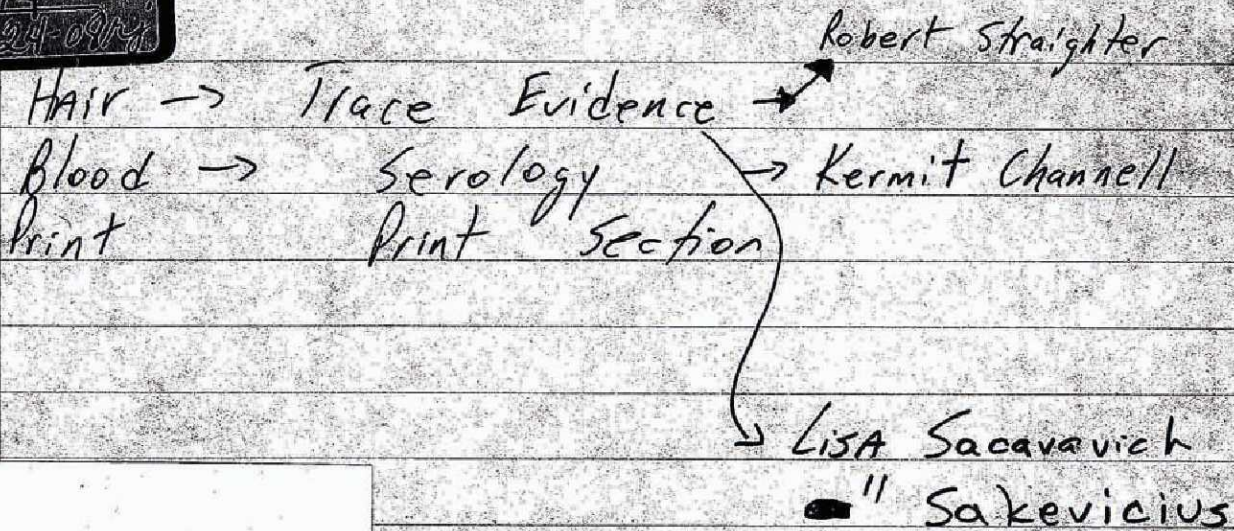 Robert Straighter
HAir -> Trace Evidence ->
Blood -> Serology -> Kermit Channell
Print Print Section
LisA Sacavavich
" Sakevicius